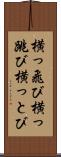 横っ飛び横っ
跳び横っとび